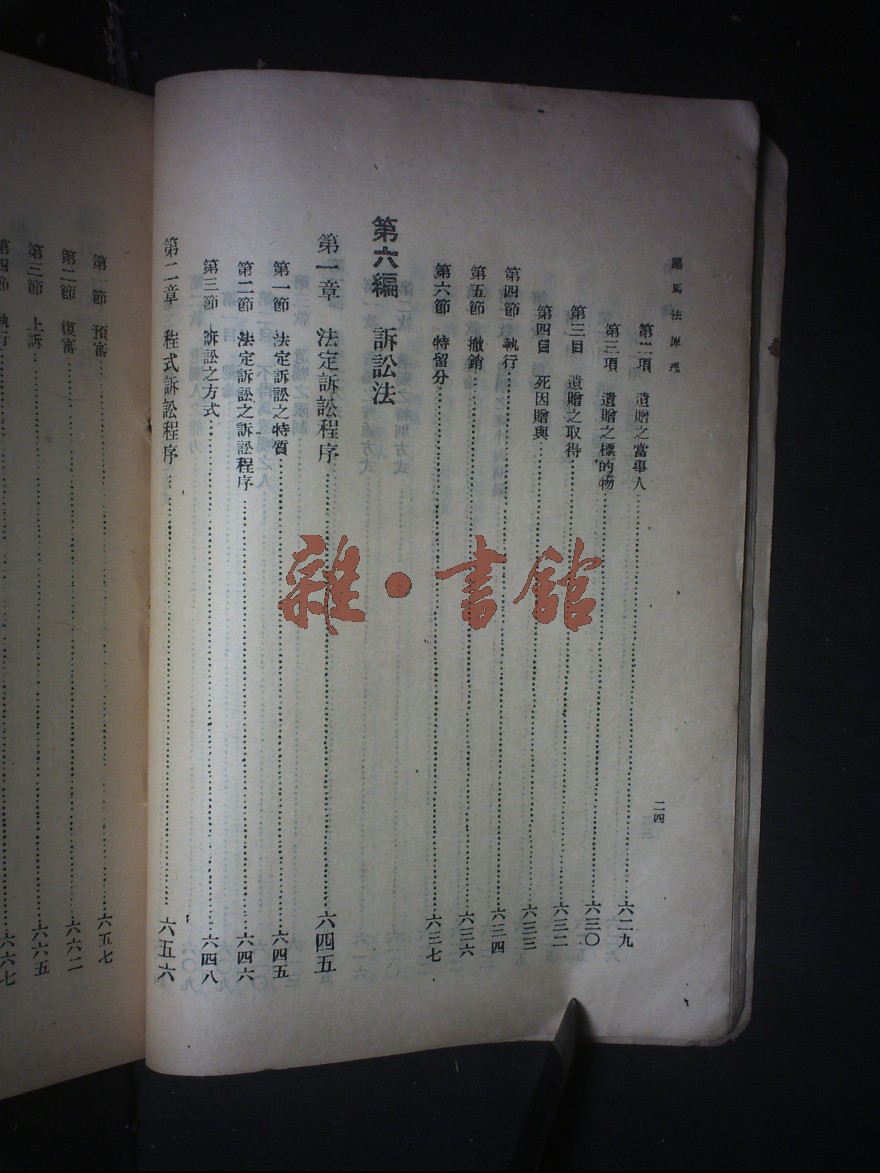 羅馬法原理
二四
第二項 遺贈之當事人……六二九
第三項 遺贈之標的物……六三〇
第三目 遺贈之取得……六三二
第四目 死因贈與……六三三
第四節 執行……六三四
第五節 撤銷……六三六
第六節 特留分……六三七
第六編 訴訟法
第一章 法定訴訟程序……六四五
第一節 法定訴訟之特質……六四五
第二節 法定訴訟之訴訟程序……六四六
第三節 訴訟之方式……六四八
第二章 程式訴訟程序……六五六
第一節 預審……六五七
第二節 復審……六六二
第三節 上訴……六六五
第四節 執行……六六七
雜·書館